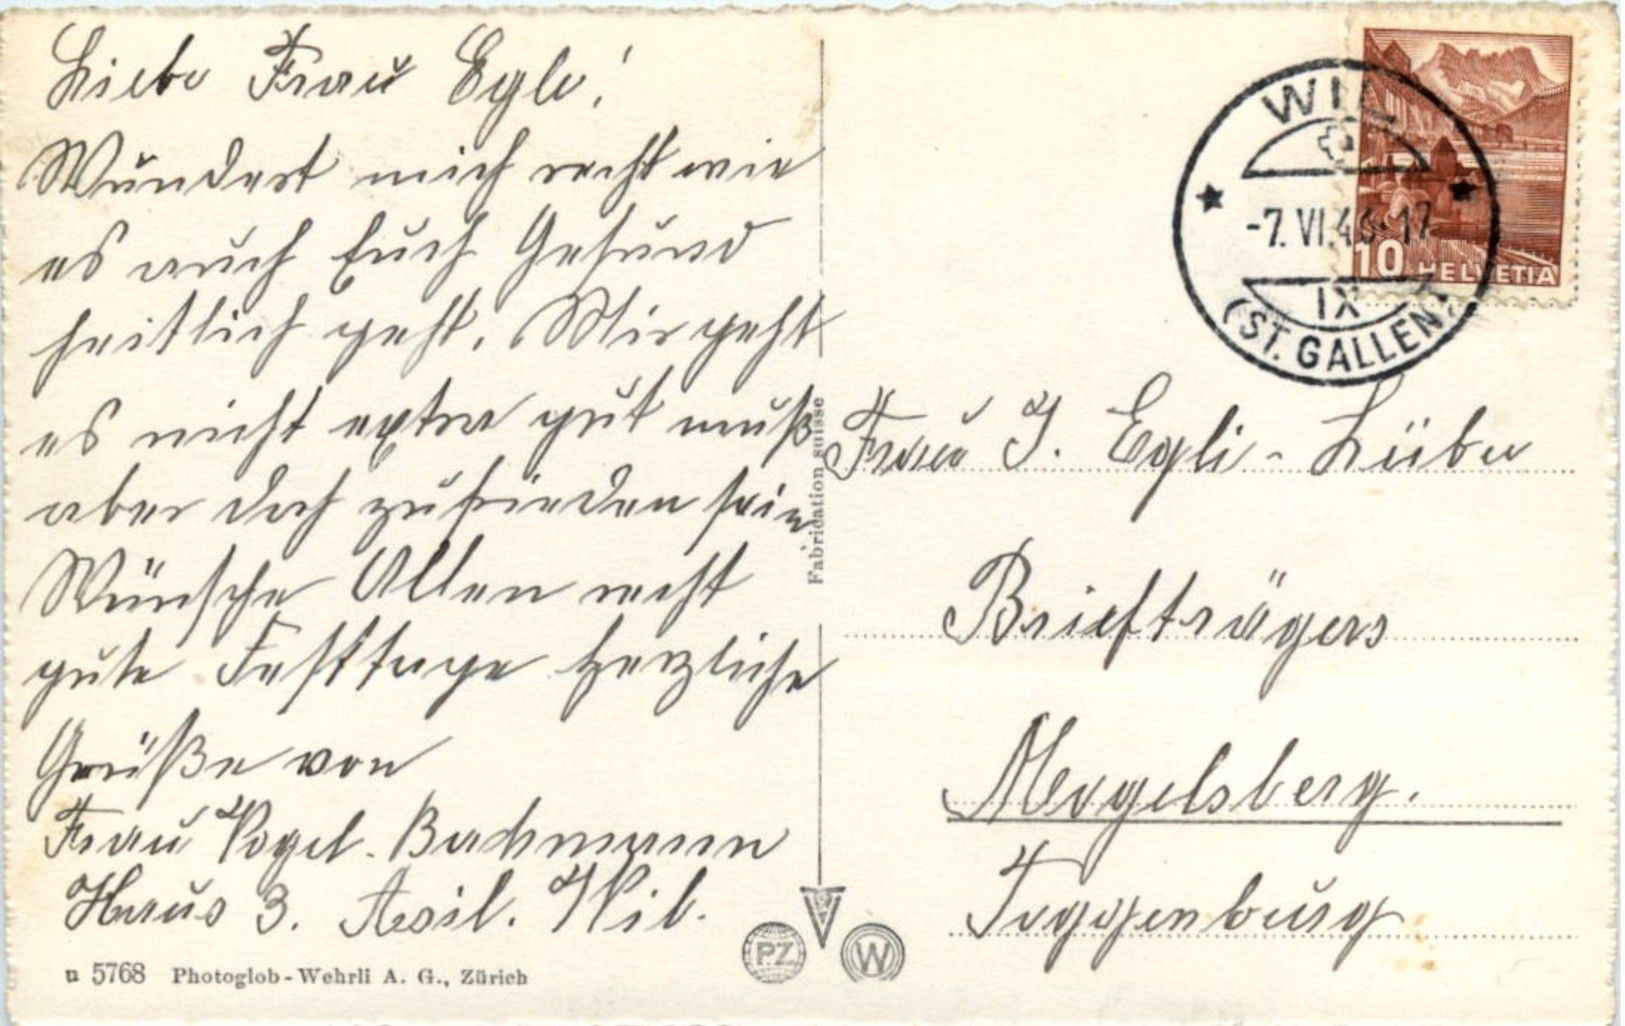 Liebe Frau Egle!
Wundert mich recht wie
es auch Euch Gesund
heitlich geht. Mir geht
es nicht extra gut muß
aber doch zufrieden sein
Wünsche Allen recht
gute Festtage herzliche
Grüße von
Frau Vogel-Bachmann
Haus 3. Asil. Wil.
u 5768 Photoglob-Wehrli A. G., Zürich
Fabrication suisse
PZ
W
WIL
-7. VI. 46-17
IX
(ST. GALLEN)
10 HELVETIA
Frau J. Egli-
Briefträgers
Mogelsberg.
Toggenburg